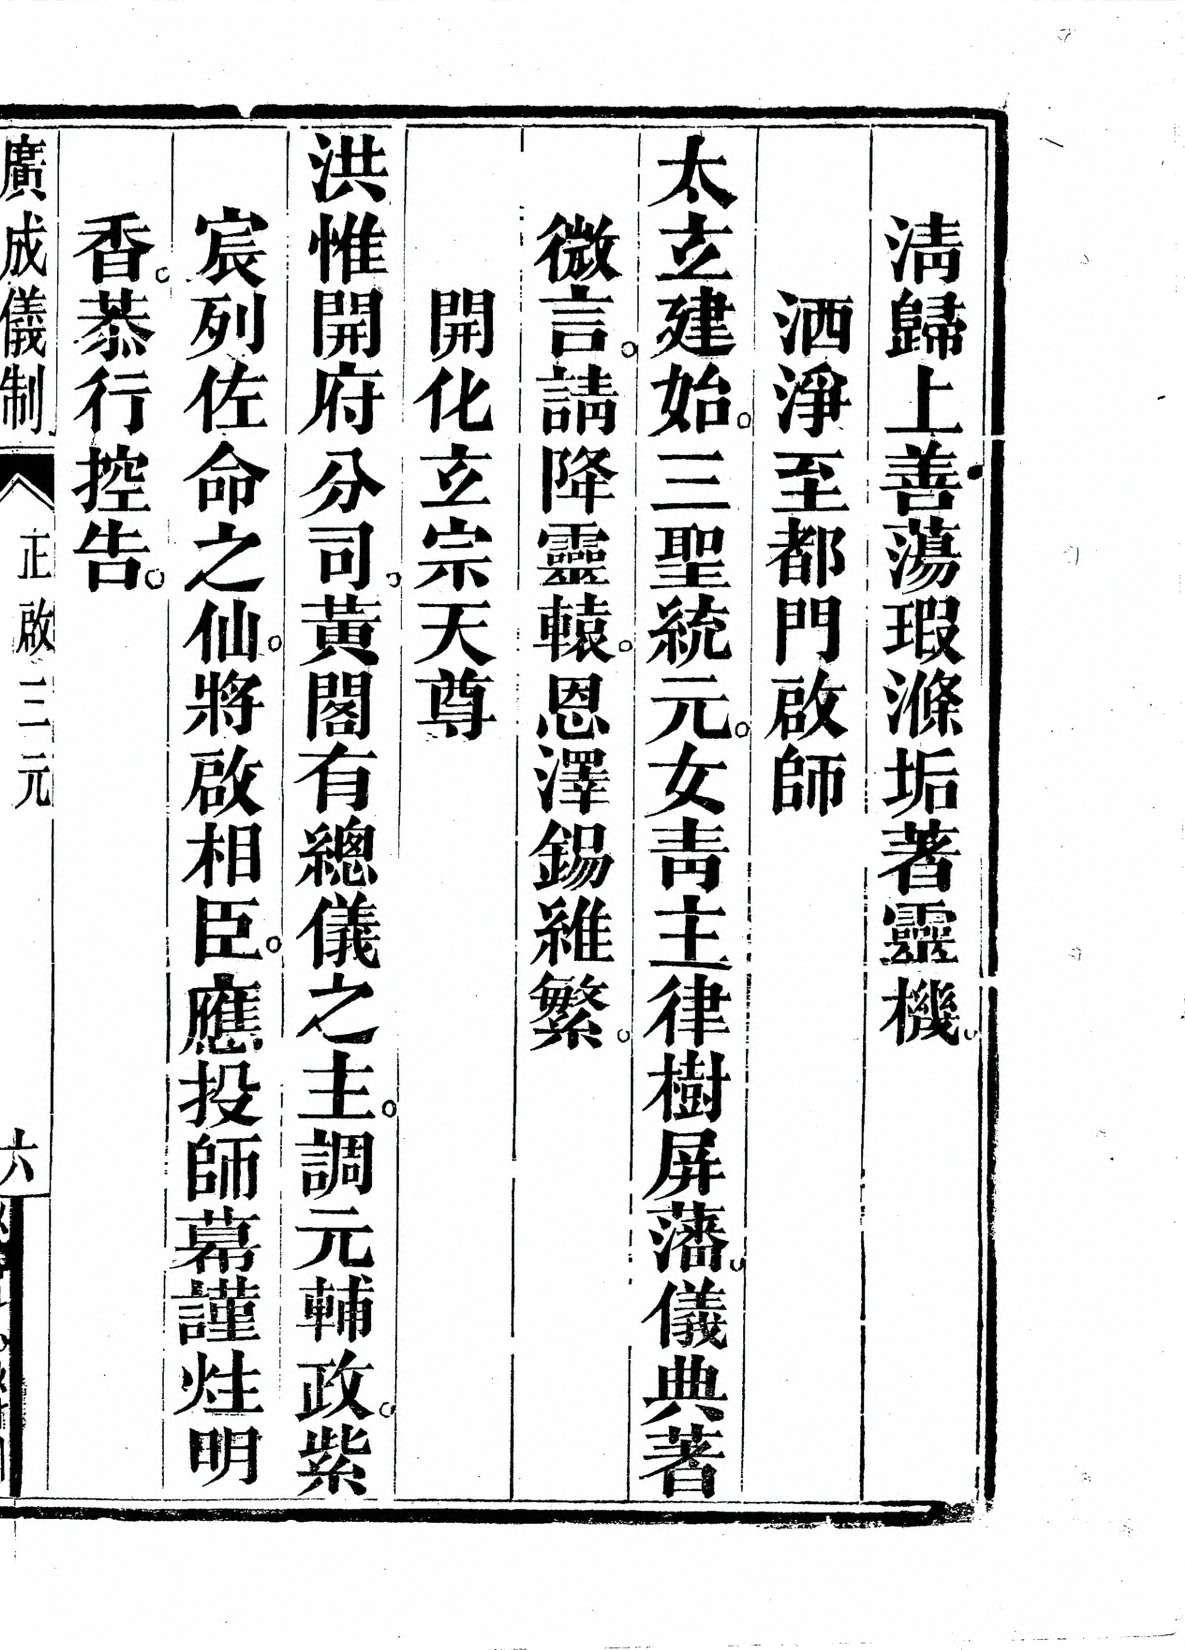 淸歸上善蕩瑕滌垢著靈機。
洒淨至都門啟師
太立建始。三聖統元。女靑主律樹屏藩。儀典著
微言。請降靈轅。恩澤錫維繁。
開化立宗天尊
洪惟開府分司。黃閣有總儀之主。調元輔政。紫
宸列佐命之仙。將啟相臣。應投師幕謹炷明
香。恭行控告。
廣成儀制
正啟三元
六